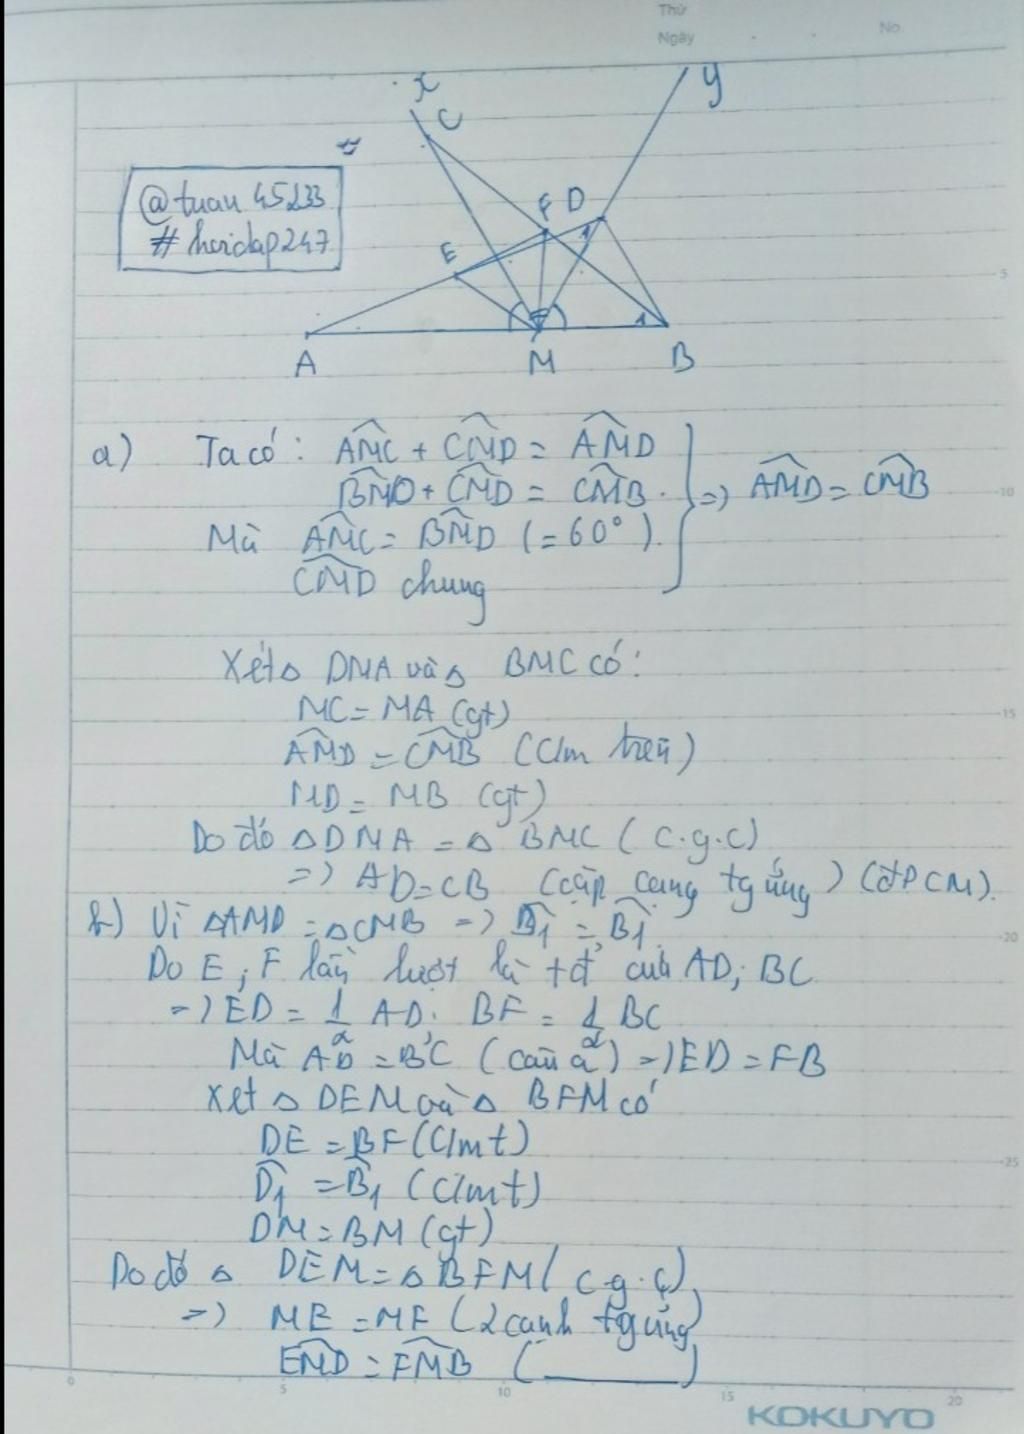 Thứ
Ngày
No
x
y
C
@tuan45233
#hoidap247
F D
1
E
1
A
M
B
a) Ta có: AMC + CMD = AMD
BMD + CMD = CMB. => AMD = CMB
Mà AMC = BMD (=60°).
CMD chung
Xét Δ DMA và Δ BMC có:
MC = MA (gt)
AMD = CMB (C/m trên)
MD = MB (gt)
Do đó Δ DMA = Δ BMC (c.g.c)
=> AD = CB (cặp cạng tg ứng) (đPCM).
b) Vì ΔAMD = ΔCMB => D1 = B1
Do E; F lần lượt là tđ của AD; BC
=> ED = 1/2 AD; BF = 1/2 BC
Mà AD = BC (câu a) => ED = FB
Xét Δ DEM và Δ BFM có
DE = BF (C/mt)
D1 = B1 (C/mt)
DM = BM (gt)
Do đó Δ DEM = Δ BFM (c.g.c)
=> ME = MF (2 cạnh tg ứng)
EMD = FMB (______)
5
10
15
20
25
0
5
10
15
20
KOKUYO